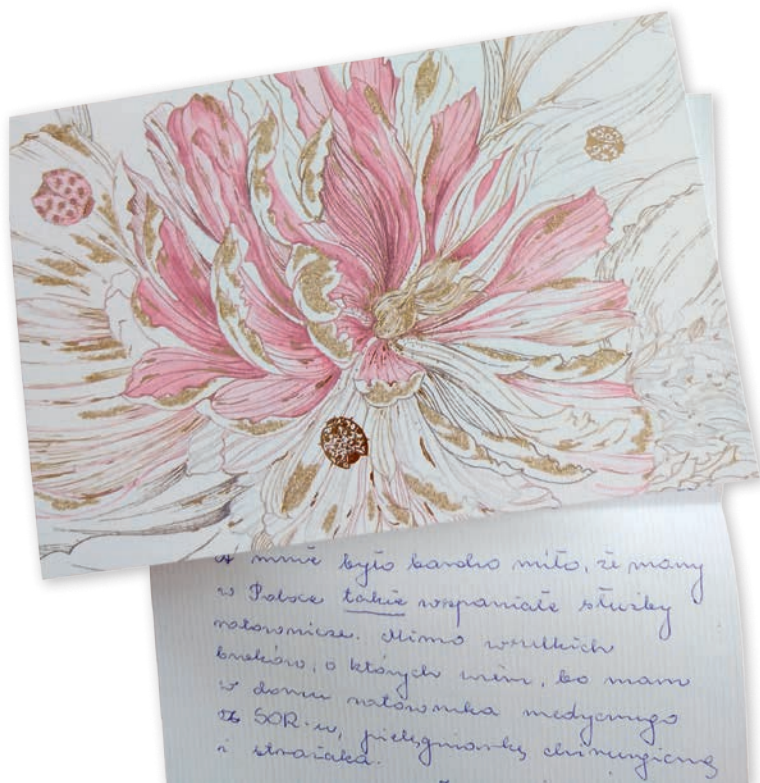 A mnie było bardzo miło, że mamy
w Polsce takie wspaniałe służby
ratownicze. Mimo wszelkich
braków, o których wiem, bo mam
w domu ratownika medycznego
SOR-u, pielęgniarkę chirurgiczną
i strażaka.